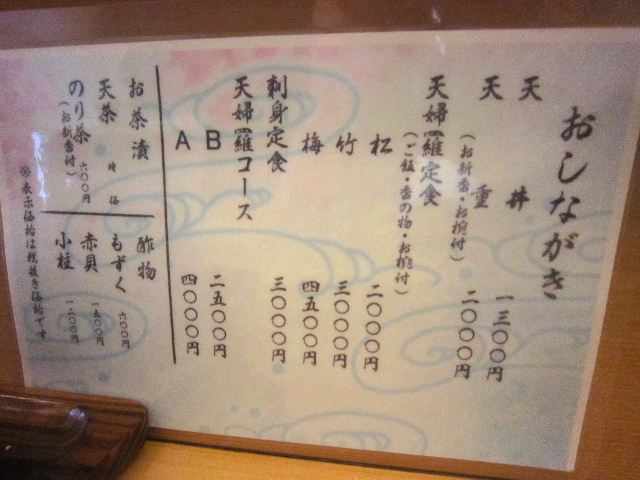 おしながき
天丼 一三〇〇円
天重 二〇〇〇円
(お新香・お椀付)
天婦羅定食
(ご飯・香の物・お椀付)
松 二〇〇〇円
竹 三〇〇〇円
梅 四五〇〇円
刺身定食 三〇〇〇円
天婦羅コース
B 二五〇〇円
A 四〇〇〇円
お茶漬
天茶 時価
のり茶 六〇〇円
(お新香付)
酢物
もずく 六〇〇円
赤貝 一五〇〇円
小柱 一二〇〇円
※表示価格は税抜き価格です